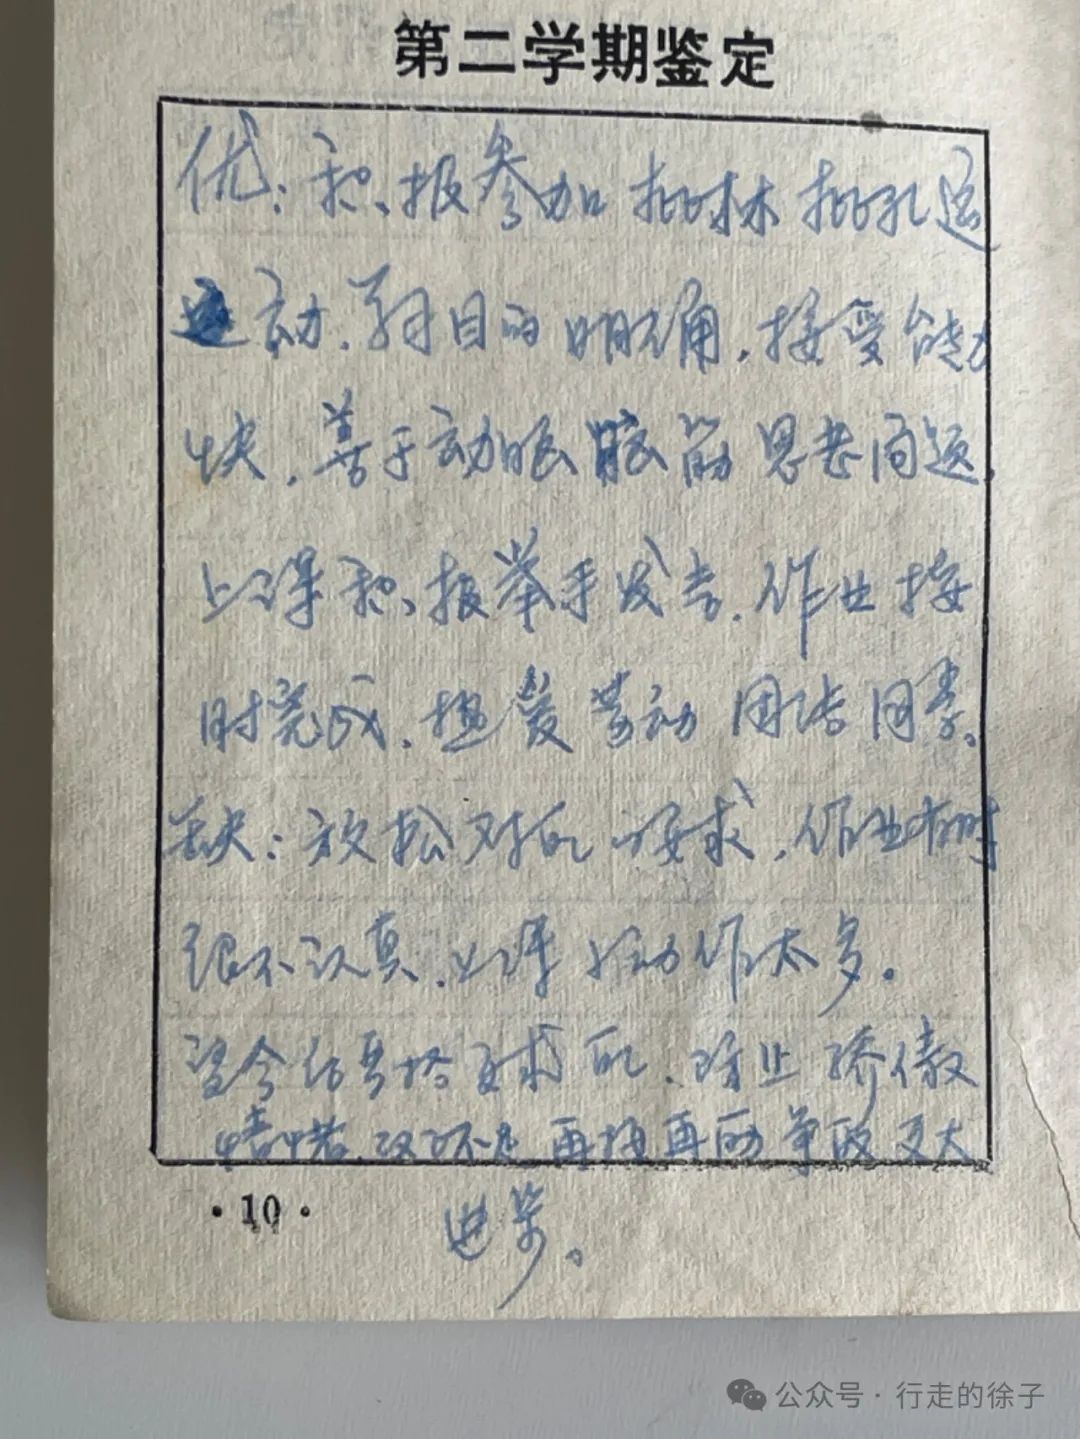 第二学期鉴定
优：积极参加批林批孔运
动，学习目的明确，接受能力
快，善于动脑脑筋思考问题，
上课积极举手发言，作业按
时完成，热爱劳动团结同学。
缺：放松对自己要求，作业有时
很不认真，上课小动作太多。
望今后严格要求自己，防止骄傲
情绪，改不足再接再励争取更大
进步。
·10·
公众号·行走的徐子